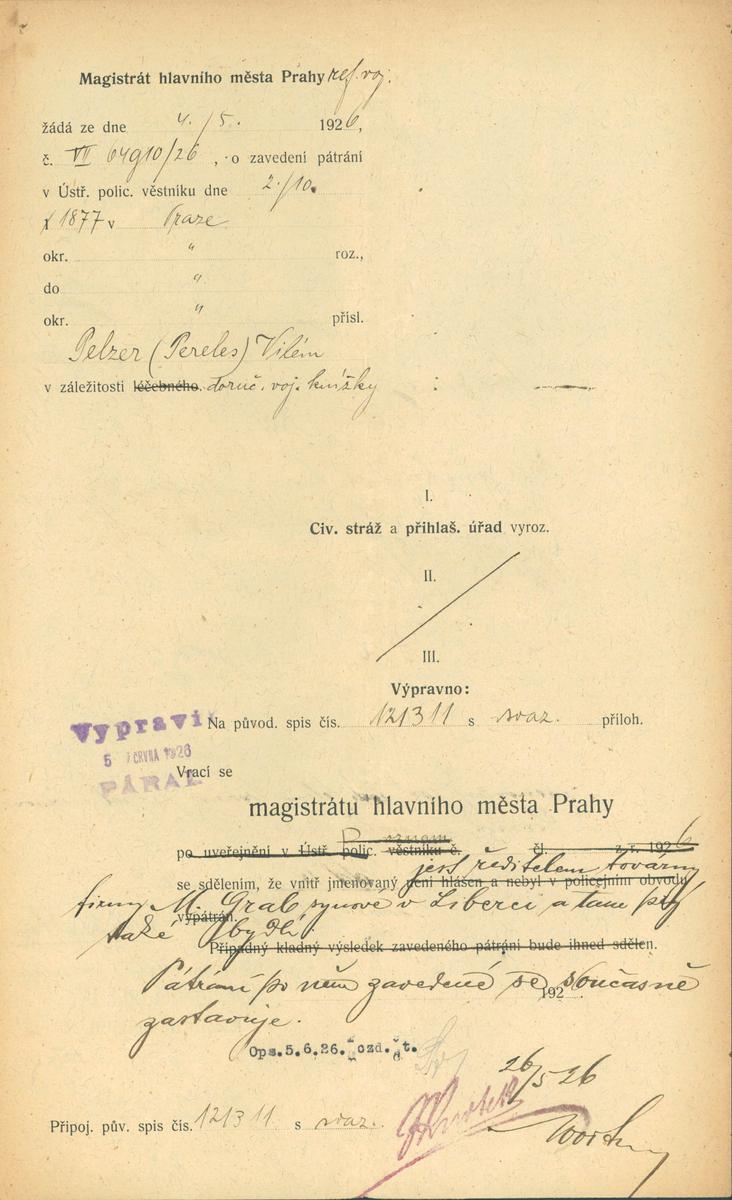 Magistrát hlavního města Prahy ref. voj.
žádá ze dne 4./5. 1926,
č. VII 64910/26, o zavedení pátrání
v Ústř. polic. věstníku dne 2./10.
1877 v Praze
okr. " roz.,
do "
okr. " přísl.
Pelzer (Pereles) Vilém
v záležitosti léčebného. doruč. voj. knížky
I.
Civ. stráž a přihlaš. úřad vyroz.
II.
III.
Výpravno:
Na původ. spis čís. 121311 s svaz. příloh.
Vypravil
5 ČRVNA 1926
PÁRAL
Vrací se
magistrátu hlavního města Prahy
po uveřejnění v Ústř. polic. věstníku č. čl. z r. 1926
jest ředitelem továrny
se sdělením, že vnitř jmenovaný není hlášen a nebyl v policejním obvodu
firmy M. Grab synové v Liberci a tam prý
vypátrán.
také bydlí.
Případný kladný výsledek zavedeného pátrání bude ihned sdělen.
Pátrání po něm zavedené se současně
192
zastavuje.
Ops.5.6.26.
26/5 26
Připoj. pův. spis čís. 121311 s svaz.